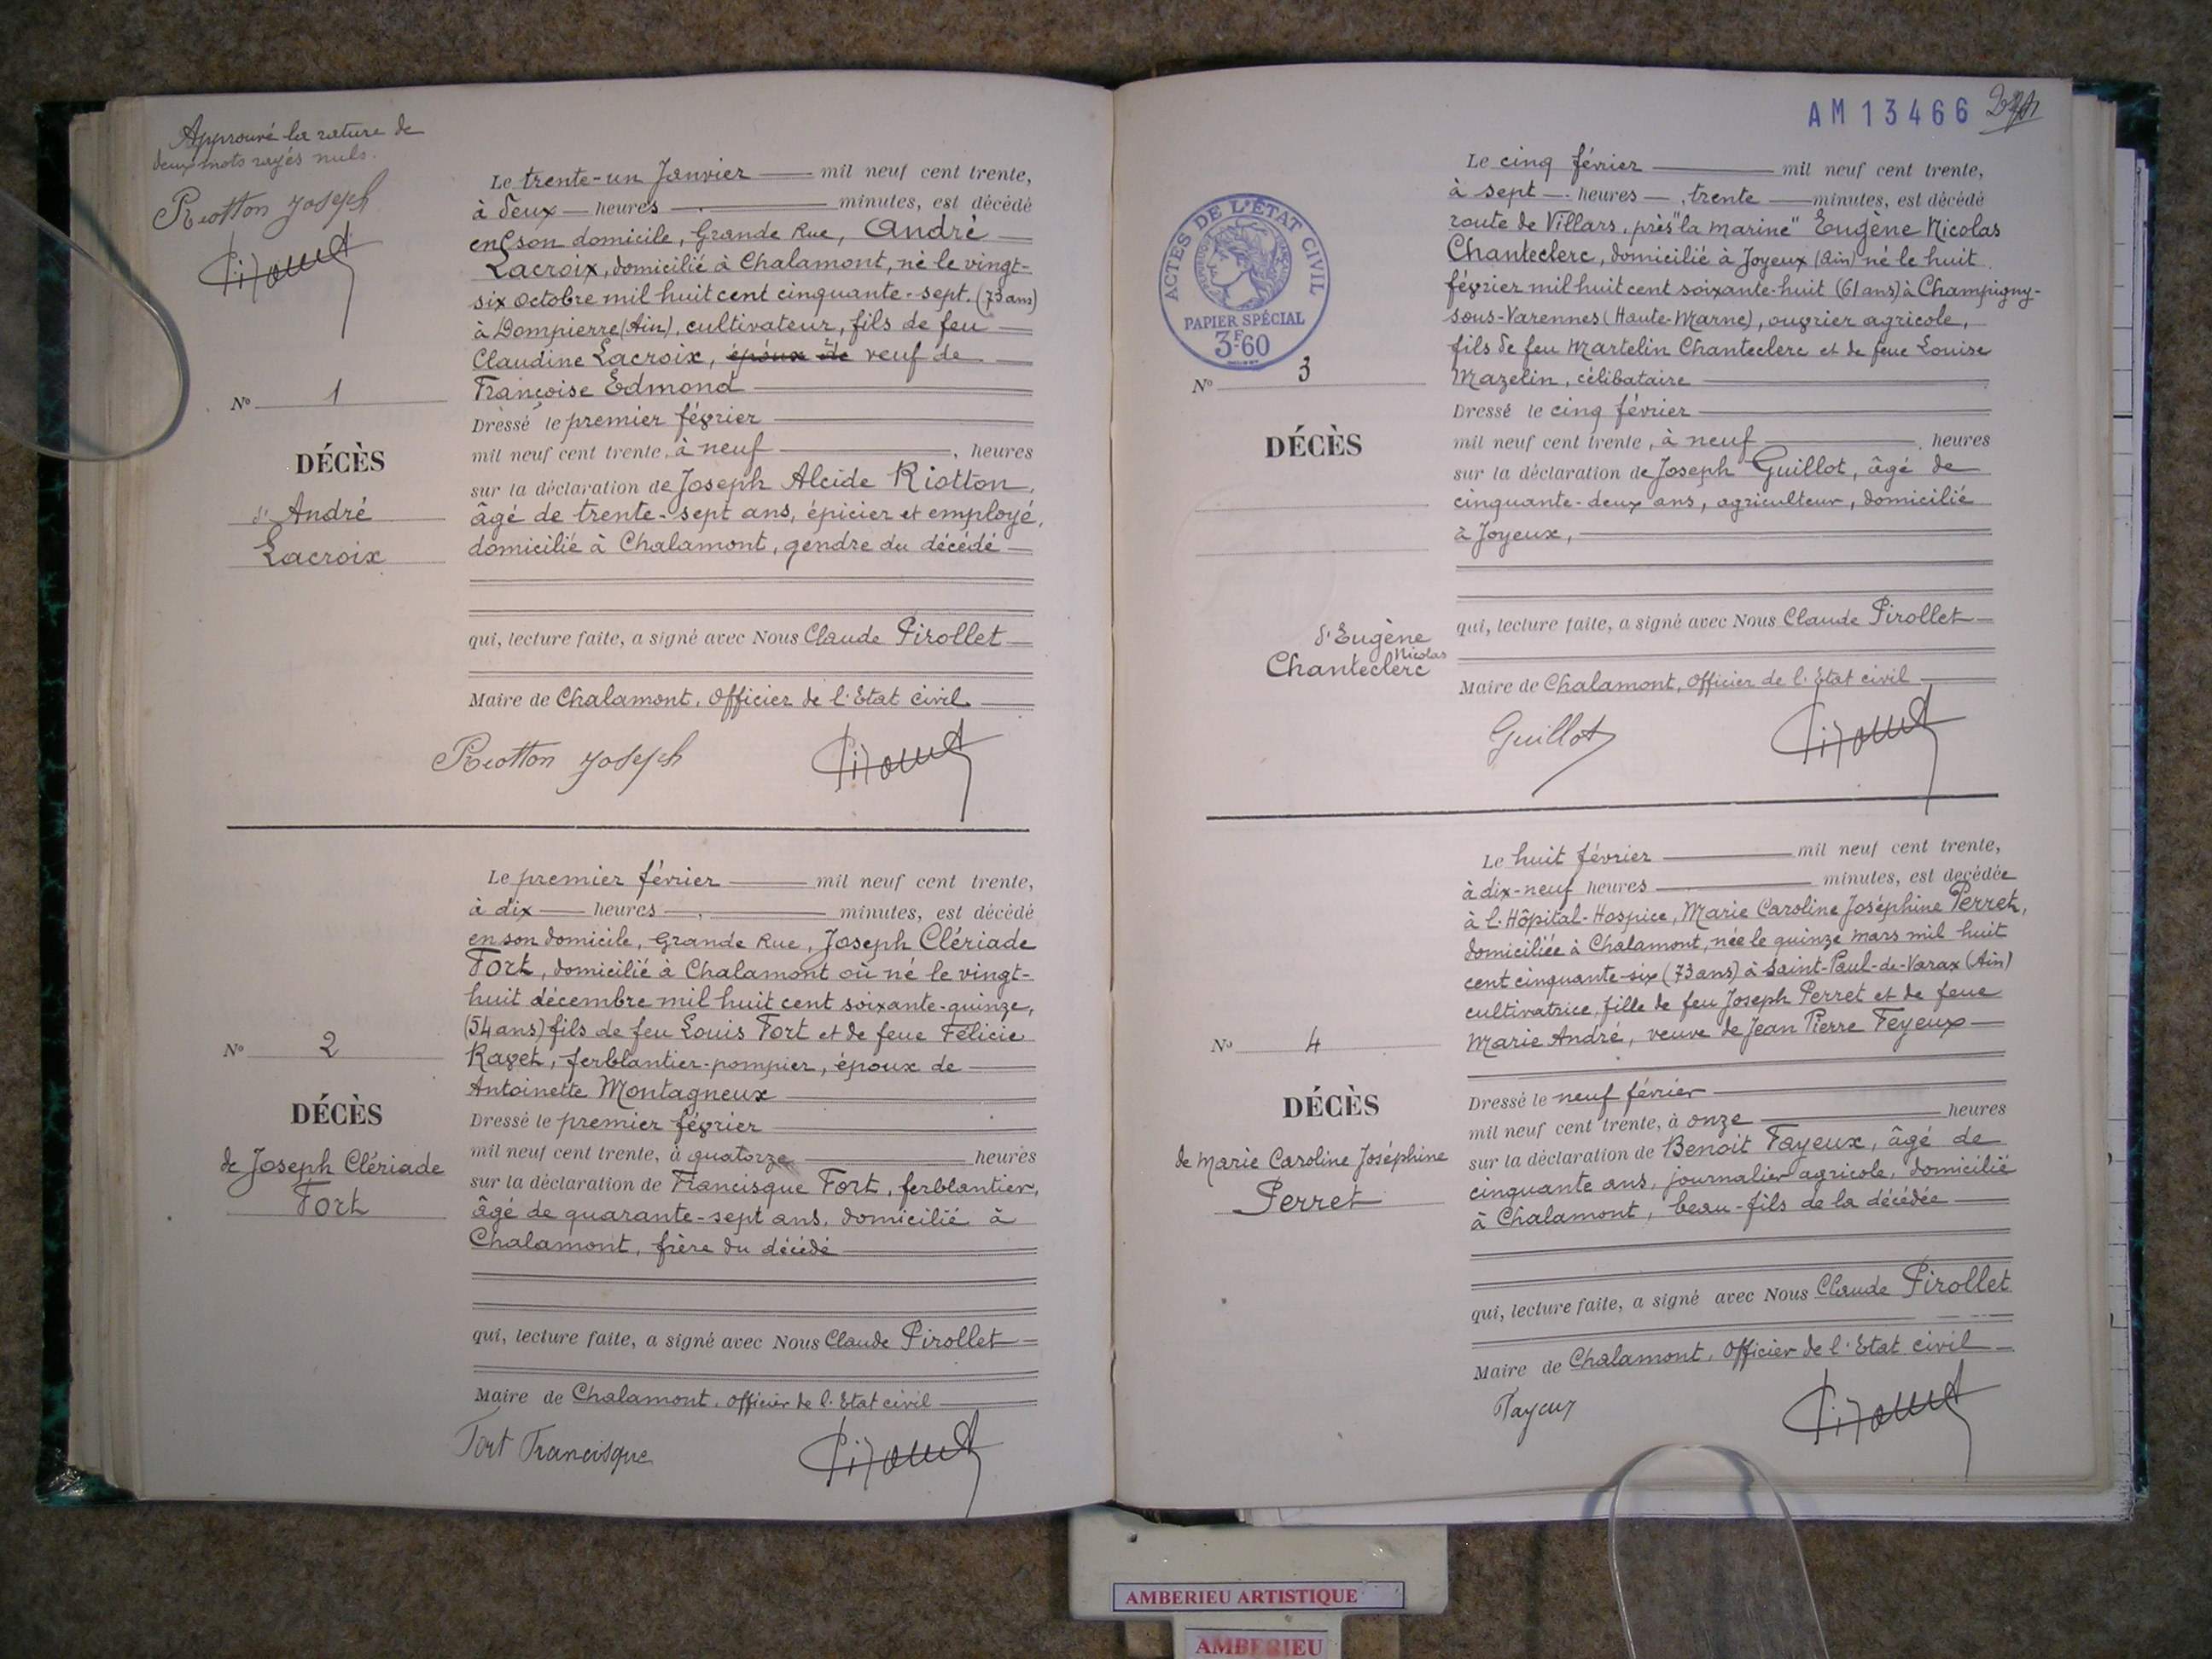 Approuvé la rature de
deux mots rayés nuls.
Riotton Joseph
Le trente-un Janvier mil neuf cent trente,
à deux heures minutes, est décédé
en son domicile, Grande Rue, André
Lacroix, domicilié à Chalamont, né le vingt-
six octobre mil huit cent cinquante-sept (73 ans)
à Dompierre (Ain), cultivateur, fils de feu
Claudine Lacroix, époux de veuf de
Françoise Edmond
Dressé le premier février
mil neuf cent trente, à neuf, heures
sur la déclaration de Joseph Alcide Riotton,
âgé de trente-sept ans, épicier et employé,
domicilié à Chalamont, gendre du décédé
qui, lecture faite, a signé avec Nous Claude Pirollet
Maire de Chalamont, Officier de l'Etat civil
Riotton Joseph
N° 1
DÉCÈS
d'André
Lacroix
Le premier février mil neuf cent trente,
à dix heures, minutes, est décédé
en son domicile, Grande Rue, Joseph Clériade
Fort, domicilié à Chalamont où né le vingt-
huit décembre mil huit cent soixante-quinze,
(54 ans) fils de feu Louis Fort et de feue Félicie
Raget, ferblantier-pompier, époux de
Antoinette Montagneux
Dressé le premier février
mil neuf cent trente, à quatorze heures
sur la déclaration de Francisque Fort, ferblantier,
âgé de quarante-sept ans, domicilié à
Chalamont, frère du décédé
qui, lecture faite, a signé avec Nous Claude Pirollet
Maire de Chalamont, officier de l'Etat civil
Fort Francisque
N° 2
DÉCÈS
de Joseph Clériade
Fort
AM 13466
ACTES DE L'ÉTAT CIVIL
PAPIER SPÉCIAL
3F60
Le cinq février mil neuf cent trente,
à sept heures, trente minutes, est décédé
route de Villars, près "la marine" Eugène Nicolas
Chanteclerc, domicilié à Joyeux (Ain) né le huit
février mil huit cent soixante-huit (61 ans) à Champigny-
sous-Varennes (Haute-Marne), ouvrier agricole,
fils de feu Martelin Chanteclerc et de feue Louise
Mazelin, célibataire
Dressé le cinq février
mil neuf cent trente, à neuf, heures
sur la déclaration de Joseph Guillot, âgé de
cinquante-deux ans, agriculteur, domicilié
à Joyeux,
qui, lecture faite, a signé avec Nous Claude Pirollet
Maire de Chalamont, Officier de l'Etat civil
Guillot
N° 3
DÉCÈS
d'Eugène
Nicolas
Chanteclerc
Le huit février mil neuf cent trente,
à dix-neuf heures minutes, est décédée
à l'Hôpital-Hospice, Marie Caroline Joséphine Perret,
domiciliée à Chalamont, née le quinze mars mil huit
cent cinquante-six (73 ans) à Saint-Paul-de-Varax (Ain)
cultivatrice, fille de feu Joseph Perret et de feue
Marie André, veuve de Jean Pierre Feyeux
Dressé le neuf février
mil neuf cent trente, à onze heures
sur la déclaration de Benoit Fayeux, âgé de
cinquante ans, journalier agricole, domicilié
à Chalamont, beau-fils de la décédée
qui, lecture faite, a signé avec Nous Claude Pirollet
Maire de Chalamont, Officier de l'Etat civil
Fayeux
N° 4
DÉCÈS
de Marie Caroline Joséphine
Perret
AMBERIEU ARTISTIQUE
AMBERIEU